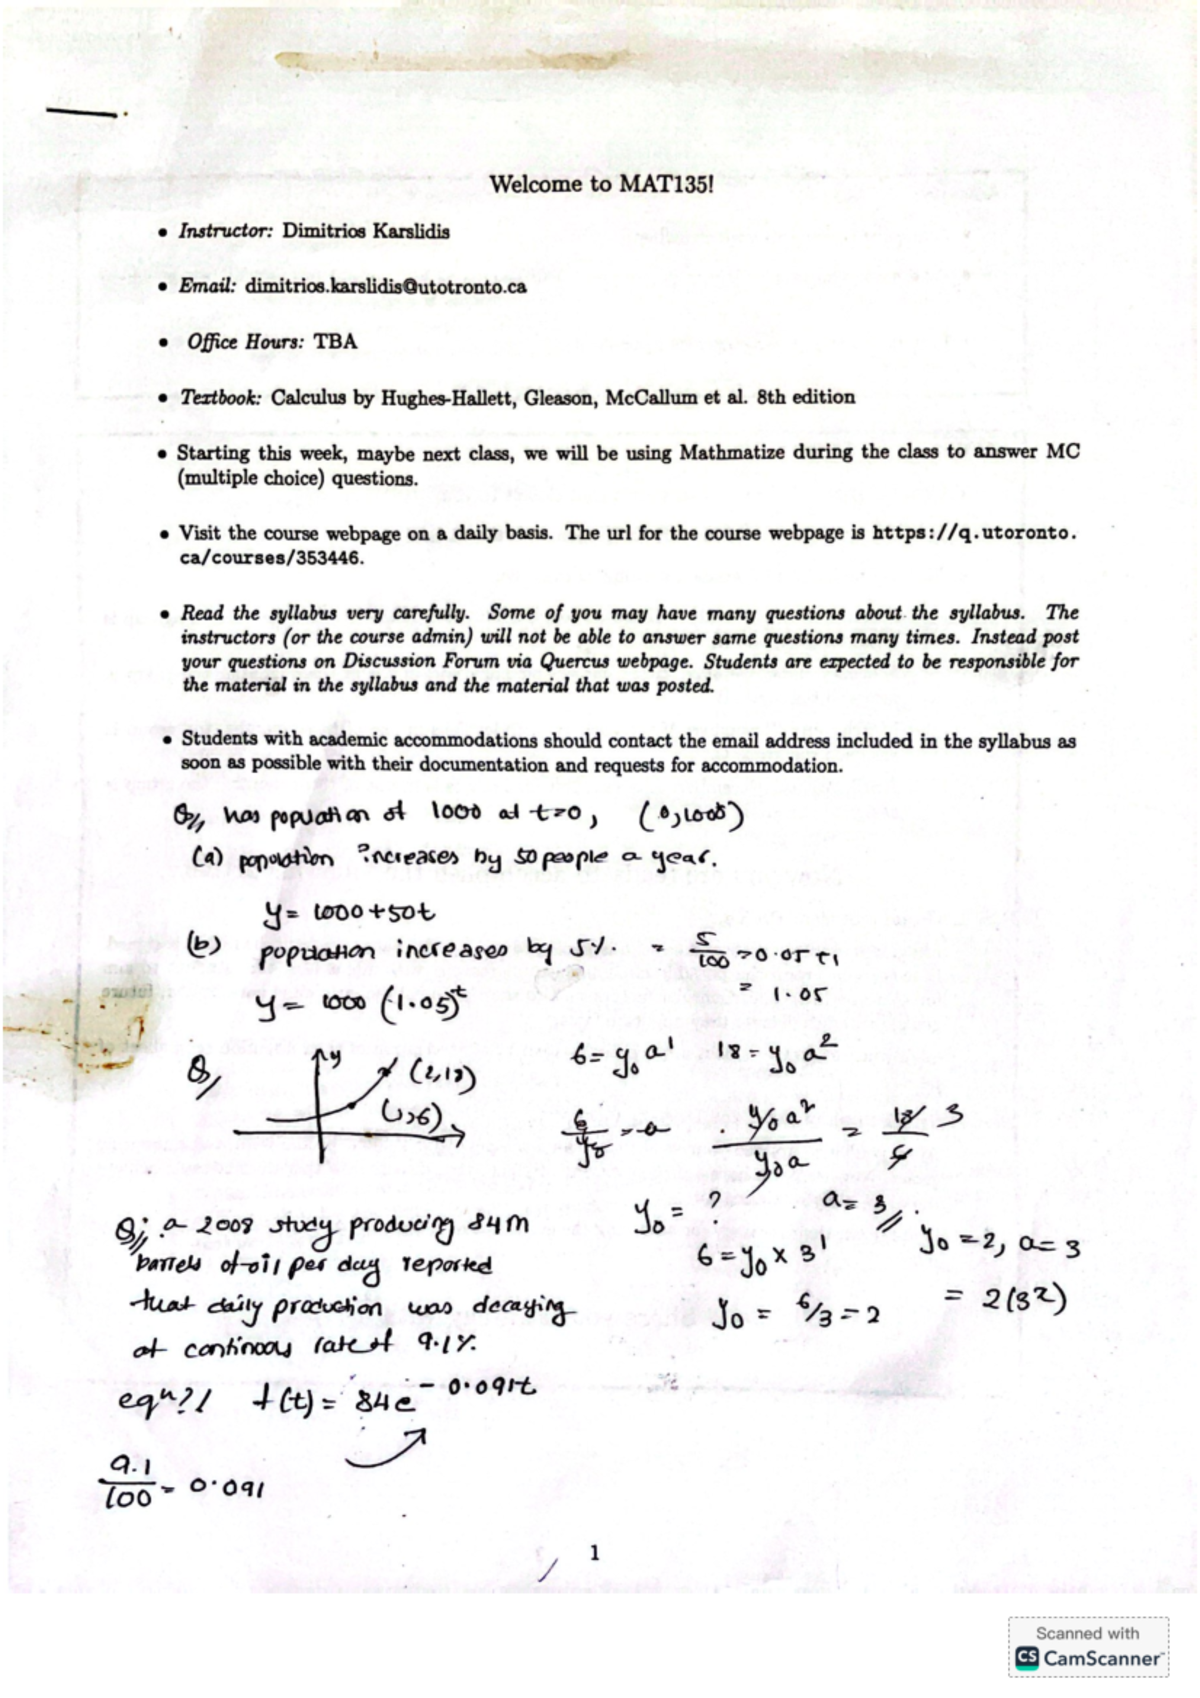 Welcome to MAT135!
• Instructor: Dimitrios Karslidis
• Email: dimitrios.karslidis@utotronto.ca
• Office Hours: TBA
• Textbook: Calculus by Hughes-Hallett, Gleason, McCallum et al. 8th edition
• Starting this week, maybe next class, we will be using Mathmatize during the class to answer MC
(multiple choice) questions.
• Visit the course webpage on a daily basis. The url for the course webpage is https://q.utoronto.
ca/courses/353446.
• Read the syllabus very carefully. Some of you may have many questions about the syllabus. The
instructors (or the course admin) will not be able to answer same questions many times. Instead post
your questions on Discussion Forum via Quercus webpage. Students are expected to be responsible for
the material in the syllabus and the material that was posted.
• Students with academic accommodations should contact the email address included in the syllabus as
soon as possible with their documentation and requests for accommodation.
Q// has population of 1000 at t=0, (0,1000)
(a) population increases by 50 people a year.
y = 1000+50t
(b) population increases by 5%. = 5/100 = 0.05 +1
= 1.05
y = 1000 (1.05)^t
Q/ y (2,18) (1,6)
6 = y₀ a¹ 18 = y₀ a²
6/y₀ = a y₀a²/y₀a = 18/6 3
y₀ = ? a = 3//
Q// : a 2008 study producing 84M
barrels of oil per day reported
that daily production was decaying
at continous rate of 9.1%.
6 = y₀ x 3¹ y₀ = 2, a = 3
y₀ = 6/3 = 2 = 2(3²)
eqⁿ?! f(t) = 84e^-0.091t
9.1/100 = 0.091
1
Scanned with
CS CamScanner